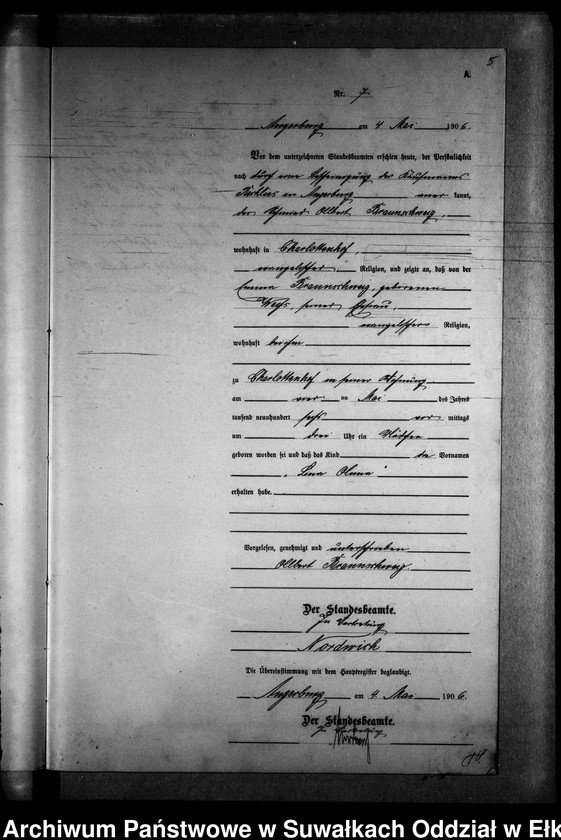 5
A.
Nr. 7.
Angerburg am 4 Mai 1906.
Vor dem unterzeichneten Standesbeamten erschien heute, der Persönlichkeit
nach durch eine Bescheinigung des Kaufmanns
in Angerburg kannt,
der Schmied Albert Braunschweig,
wohnhaft in Charlottenhof,
evangelischer Religion, und zeigte an, daß von der
Emma Braunschweig, geborenen
seiner Ehefrau,
evangelischer Religion,
wohnhaft bei ihm
zu Charlottenhof in seiner Wohnung
am vier ten Mai des Jahres
tausend neunhundert sechs vor mittags
um drei Uhr ein Mädchen
geboren worden sei und daß das Kind die Vornamen
„Lina
erhalten habe.
Vorgelesen, genehmigt und unterschrieben
Albert Braunschweig.
Der Standesbeamte.
In Vertretung
Nordwich
Die Übereinstimmung mit dem Hauptregister beglaubigt.
Angerburg am 4. Mai 1906.
Der Standesbeamte.
Archiwum Państwowe w Suwałkach Oddział w Ełk